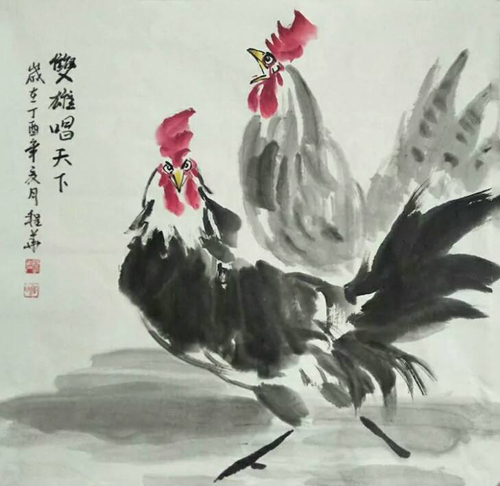 雙雄唱天下
歲在丁酉年亥月程華